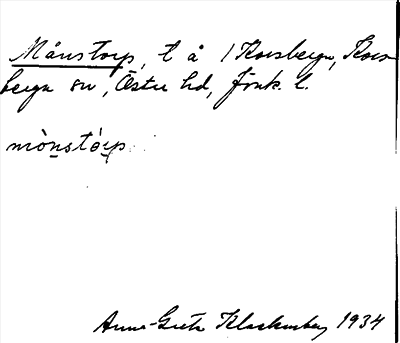 Månstorp, t å 1 Korsberga, Kors-
berga sn, Östra hd, Jönk. l.
mònstórp
Anna-Greta Klackenberg 1934